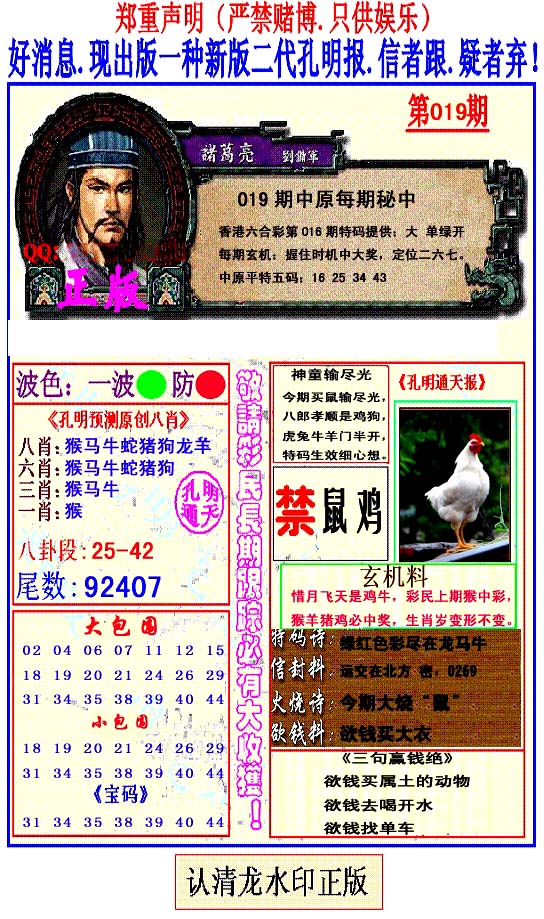 郑重声明（严禁赌博.只供娱乐）
好消息.现出版一种新版二代孔明报.信者跟.疑者弃！
第019期
諸葛亮
劉備軍
019 期中原每期秘中
香港六合彩第 016 期特码提供：大 单绿开
每期玄机：握住时机中大奖，定位二六七。
中原平特五码：16 25 34 43
QQ:
正版
波色：一波 防
《孔明预测原创八肖》
八肖:猴马牛蛇猪狗龙羊
六肖:猴马牛蛇猪狗
三肖:猴马牛
一肖:猴
孔明
通天
八卦段:25-42
尾数:92407
大包围
02 04 06 07 11 12 15
18 19 20 21 24 26 29
31 34 35 38 39 40 44
小包围
18 19 20 21 24 26 29
31 34 35 38 39 40 44
《宝码》
31 34 35 38 39 40 44
敬請彩民長期跟踪必有大收獲！
神童输尽光
今期买鼠输尽光，
八郎孝顺是鸡狗，
虎兔牛羊门半开，
特码生效细心想。
《孔明通天报》
禁鼠鸡
玄机料
惜月飞天是鸡牛，彩民上期猴中彩，
猴羊猪鸡必中奖，生肖岁变形不变。
特码诗：绿红色彩尽在龙马牛
信封料：运交在北方 密，0269
火烧诗：今期大烧“鼠”
欲钱料：欲钱买大衣
《三句赢钱绝》
欲钱买属土的动物
欲钱去喝开水
欲钱找单车
认清龙水印正版